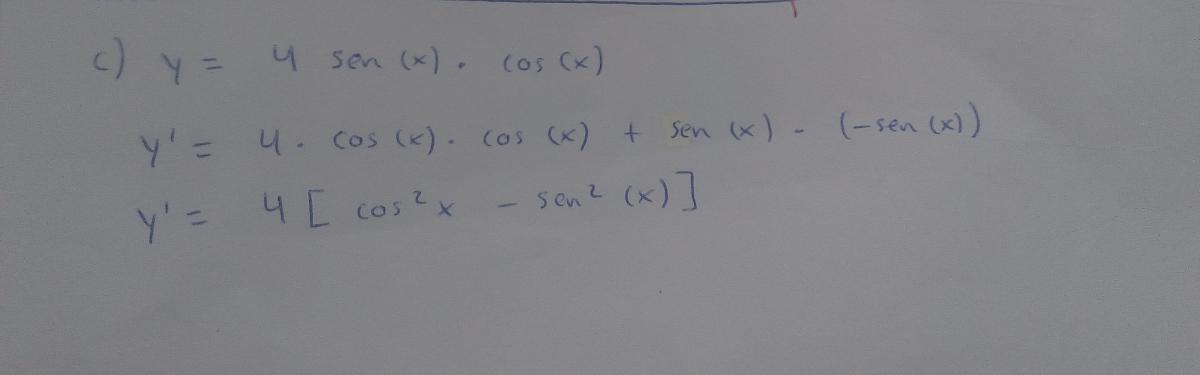 c) y = 4 sen (x) . cos (x)
y' = 4 . cos (x) . cos (x) + sen (x) . (-sen (x))
y' = 4 [ cos² x - sen² (x) ]